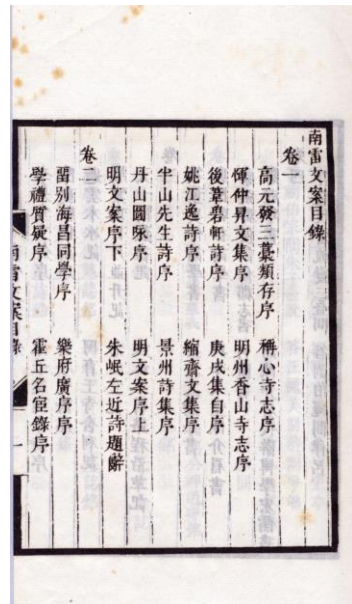 南雷文案目錄
卷一
高元發三藁類存序　稱心寺志序
惲仲昇文集序　明州香山寺志序
後葦碧軒詩序　庚戌集自序
姚江逸詩序　縮齋文集序
半山先生詩序　景州詩集序
丹山圖咏序　明文案序上
明文案序下　朱岷左近詩題辭
卷二
留別海昌同學序　樂府廣序序
學禮質疑序　霍丘名宦錄序
南雷文案目錄
一